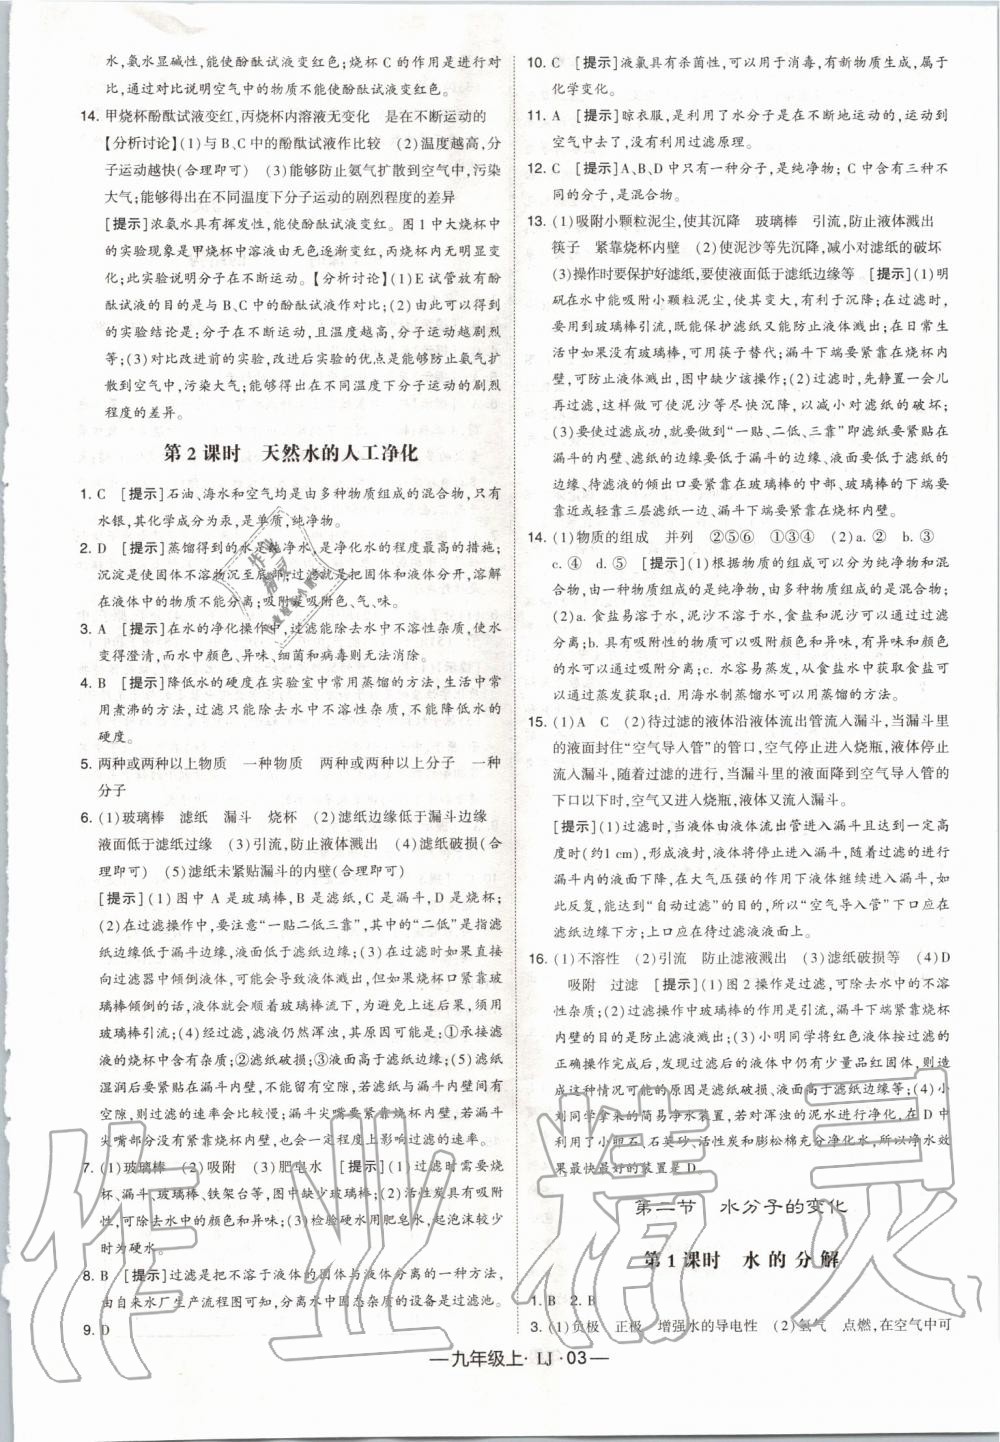 水,氨水显碱性,能使酚酞试液变红色;烧杯C的作用是进行对
比,通过对比说明空气中的物质不能使酚酞试液变红色。
14. 甲烧杯酚酞试液变红,丙烧杯内溶液无变化　是在不断运动的
【分析讨论】(1)与B、C中的酚酞试液作比较　(2)温度越高,分
子运动越快(合理即可)　(3)能够防止氨气扩散到空气中,污染
大气;能够得出在不同温度下分子运动的剧烈程度的差异
[提示]浓氨水具有挥发性,能使酚酞试液变红。图1中大烧杯中
的实验现象是甲烧杯中溶液由无色逐渐变红,丙烧杯内无明显变
化;此实验说明分子在不断运动。【分析讨论】(1)E试管放有酚
酞试液的目的是与B、C中的酚酞试液作对比;(2)由此可以得到
的实验结论是:分子在不断运动,且温度越高,分子运动越剧烈
等;(3)对比改进前的实验,改进后实验的优点是能够防止氨气扩
散到空气中,污染大气;能够得出在不同温度下分子运动的剧烈
程度的差异。
第2课时　天然水的人工净化
1. C　[提示]石油、海水和空气均是由多种物质组成的混合物,只有
水银,其化学成分为汞,是单质,纯净物。
2. D　[提示]蒸馏得到的水是纯净水,是净化水的程度最高的措施;
沉淀是使固体不溶物沉至底部;过滤就是把固体和液体分开,溶解
在液体中的物质不能分离;吸附是吸附色、气、味。
3. A　[提示]在水的净化操作中,过滤能除去水中不溶性杂质,使水
变得澄清,而水中颜色、异味、细菌和病毒则无法消除。
4. B　[提示]降低水的硬度在实验室中常用蒸馏的方法,生活中常
用煮沸的方法,过滤只能除去水中不溶性杂质,不能降低水的
硬度。
5. 两种或两种以上物质　一种物质　两种或两种以上分子　一种
分子
6. (1)玻璃棒　滤纸　漏斗　烧杯　(2)滤纸边缘低于漏斗边缘
液面低于滤纸过缘　(3)引流,防止液体溅出　(4)滤纸破损(合
理即可)　(5)滤纸未紧贴漏斗的内壁(合理即可)
[提示](1)图中A是玻璃棒,B是滤纸,C是漏斗,D是烧杯;
(2)在过滤操作中,要注意“一贴二低三靠”,其中的“二低”是指滤
纸边缘低于漏斗边缘,液面低于滤纸边缘;(3)在过滤时如果直接
向过滤器中倾倒液体,可能会导致液体溅出,但如果烧杯口紧靠玻
璃棒倾倒的话,液体就会顺着玻璃棒流下,为避免上述后果,须用
玻璃棒引流;(4)经过滤,滤液仍然浑浊,其原因可能是:①承接滤
液的烧杯中含有杂质;②滤纸破损;③液面高于滤纸边缘;(5)滤纸
湿润后要紧贴到漏斗内壁,不能有空隙,若滤纸与漏斗内壁间有
空隙,则过滤的速率会比较慢;漏斗尖嘴要紧靠烧杯内壁,若漏斗
尖嘴部分没有紧靠烧杯内壁,也会一定程度上影响过滤的速率。
7. (1)玻璃棒　(2)吸附　(3)肥皂水　[提示](1)过滤时需要烧
杯、漏斗、玻璃棒、铁架台等,图中缺少玻璃棒;(2)活性炭具有吸附
性,可除去水中的颜色和异味;(3)检验硬水用肥皂水,起泡沫较少
时为硬水。
8. B　[提示]过滤是把不溶于液体的固体与液体分离的一种方法,
由自来水厂生产流程图可知,分离水中固态杂质的设备是过滤池。
9. D
10. C　[提示]液氯具有杀菌性,可以用于消毒,有新物质生成,属于
化学变化。
11. A　[提示]晾衣服,是利用了水分子是在不断地运动的,运动到
空气中去了,没有用到过滤原理。
12. C　[提示]A、B、D中只有一种分子,是纯净物;C中含有三种不
同的分子,是混合物。
13. (1)吸附小颗粒泥尘,使其沉降　玻璃棒　引流,防止液体溅出
筷子　紧靠烧杯内壁　(2)使泥沙等先沉降,减小对滤纸的破坏
(3)操作时要保护好滤纸,要使液面低于滤纸边缘等　[提示](1)明
矾在水中能吸附小颗粒泥尘,使其变大,有利于沉降;在过滤时,
要用到玻璃棒引流,既能保护滤纸又能防止液体溅出;在日常生
活中如果没有玻璃棒,可用筷子替代;漏斗下端要紧靠在烧杯内
壁,可防止液体溅出,图中缺少该操作;(2)过滤时,先静置一会儿
再过滤,这样做可使泥沙等尽快沉降,以减小对滤纸的破坏;
(3)要使过滤成功,就要做到“一贴、二低、三靠”即滤纸要紧贴在
漏斗的内壁、滤纸的边缘要低于漏斗的边缘、液面要低于滤纸的
边缘、待滤液的倾出口要紧靠在玻璃棒的中部、玻璃棒的下端要
靠近或轻靠三层滤纸一边、漏斗下端要紧靠烧杯内壁。
14. (1)物质的组成　并列　②⑤⑥　①③④　(2)a. ②　b. ③
c. ④　d. ⑤　[提示](1)根据物质的组成可以分为纯净物和混
合物,由一种物质组成的是纯净物,由多种物质组成的是混合物。
(2)a. 食盐易溶于水,泥沙不溶于水,食盐和泥沙可以通过过滤
分离;b. 具有吸附性的物质可以吸附颜色和异味,有颜色和异味
的水可以通过吸附分离;c. 水容易蒸发,从食盐水中获取食盐可
以通过蒸发获取;d. 用海水制蒸馏水可以使用蒸馏的方法。
15. (1)A　C　(2)待过滤的液体沿液体流出管流入漏斗,当漏斗里
的液面封住“空气导入管”的管口,空气停止进入烧瓶,液体停止
流入漏斗,随着过滤的进行,当漏斗里的液面降到空气导入管的
下口以下时,空气又进入烧瓶,液体又流入漏斗。
[提示](1)过滤时,当液体由液体流出管进入漏斗且达到一定高
度时(约1 cm),形成液封,与上部空气隔绝,随着过滤的进行
漏斗内的液面下降,在大气压强的作用下液体继续进入漏斗,如
此反复,可以达到“自动过滤”的目的,所以“空气导入管”下口应在
滤纸边缘下方;上口应在待过滤液液面上。
16. (1)不溶性　(2)引流　防止滤液溅出　(3)滤纸破损等　(4)D
吸附　过滤　[提示](1)图2操作是过滤,可除去水中的不溶
性杂质,(2)过滤时玻璃棒的作用是引流,漏斗尖嘴紧靠烧杯
内壁的目的是防止滤液溅出;(3)小明同学将红色液体按过滤的
正确操作完成后,发现过滤后的液体中仍有少量品红固体,则造
成这种情况可能的原因是滤纸破损、液面高于滤纸边缘等;(4)小
刘同学拿来的简易净水装置,若对浑浊的泥水进行净化,在D中
利用了小卵石、石英砂、活性炭和膨松棉充分净化水,所以净水效
果最快最好的装置是D。
第二节　水分子的变化
第1课时　水的分解
1. B　2. B
3. (1)负极　正极　增强水的导电性　(2)氢气　点燃,在空气中可
九年级上·LJ·03
作业精灵